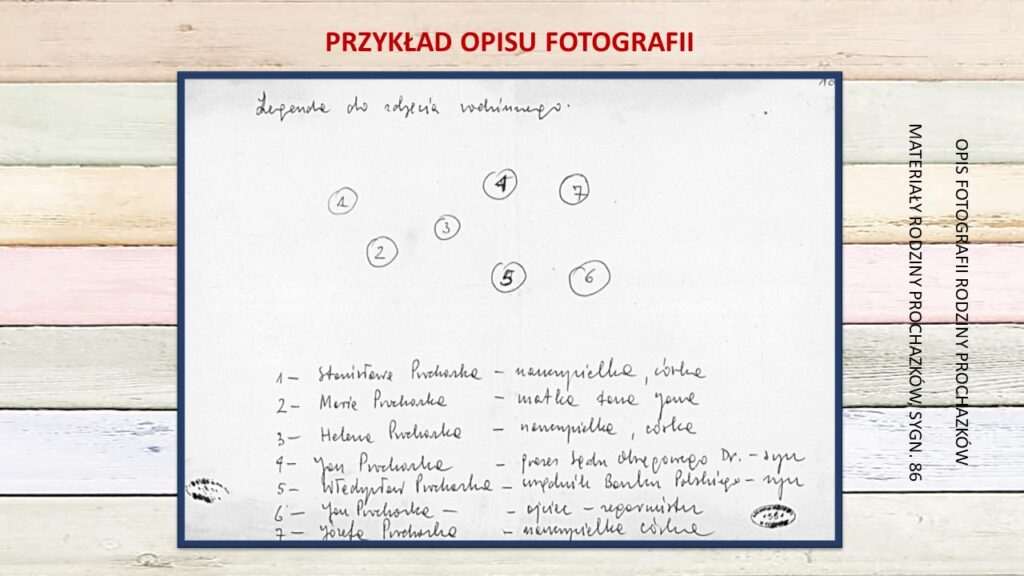 PRZYKŁAD OPISU FOTOGRAFII
10
Legenda do zdjęcia rodzinnego.
1
4
7
3
2
5
6
1 – Stanisława Prochaska – nauczycielka, córka
2 – Maria Prochaska – matka żona Jana
3 – Helena Prochaska – nauczycielka, córka
4 – Jan Prochaska – prezes Sądu Okręgowego Dr. – syn
5 – Władysław Prochaska – urzędnik Banku Polskiego – syn
6 – Jan Prochaska – – ojciec – zegarmistrz
7 – Józefa Prochaska – nauczycielka córka
OPIS FOTOGRAFII RODZINY PROCHAZKÓW
MATERIAŁY RODZINY PROCHAZKÓW, SYGN. 86